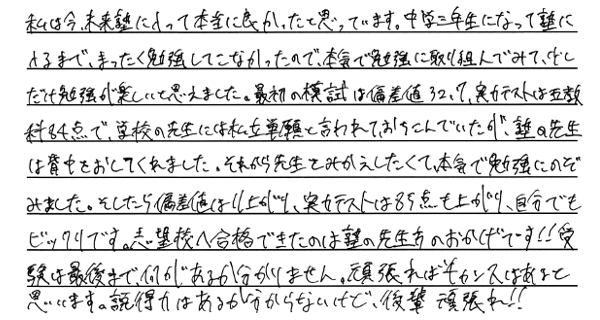 私は今、未来塾に入って本当に良かったと思っています。中学三年生になって塾に
入るまで、まったく勉強してこなかったので、本気で勉強に取り組んでみて、少し
だけ勉強が楽しいと思えました。最初の模試は偏差値32.7,実力テストは五教
科84点で、学校の先生には私立単願と言われて、おちこんでいたが、塾の先生
は背中をおしてくれました。それから先生をみかえしたくて、本気で勉強にのぞ
みました。そしたら偏差値は11上がり、実力テストは85点も上がり、自分でも
ビックリです。志望校へ合格できたのは塾の先生方のおかげです!!受
験は最後まで、何があるか分かりません。頑張ればチャンスはあると
思います。説得力はあるか分からないけど、後輩 頑張れ!!